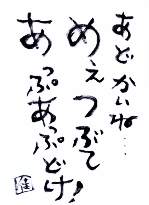 あどかいね…
めえつぶて
あっぷあっぷどけ!